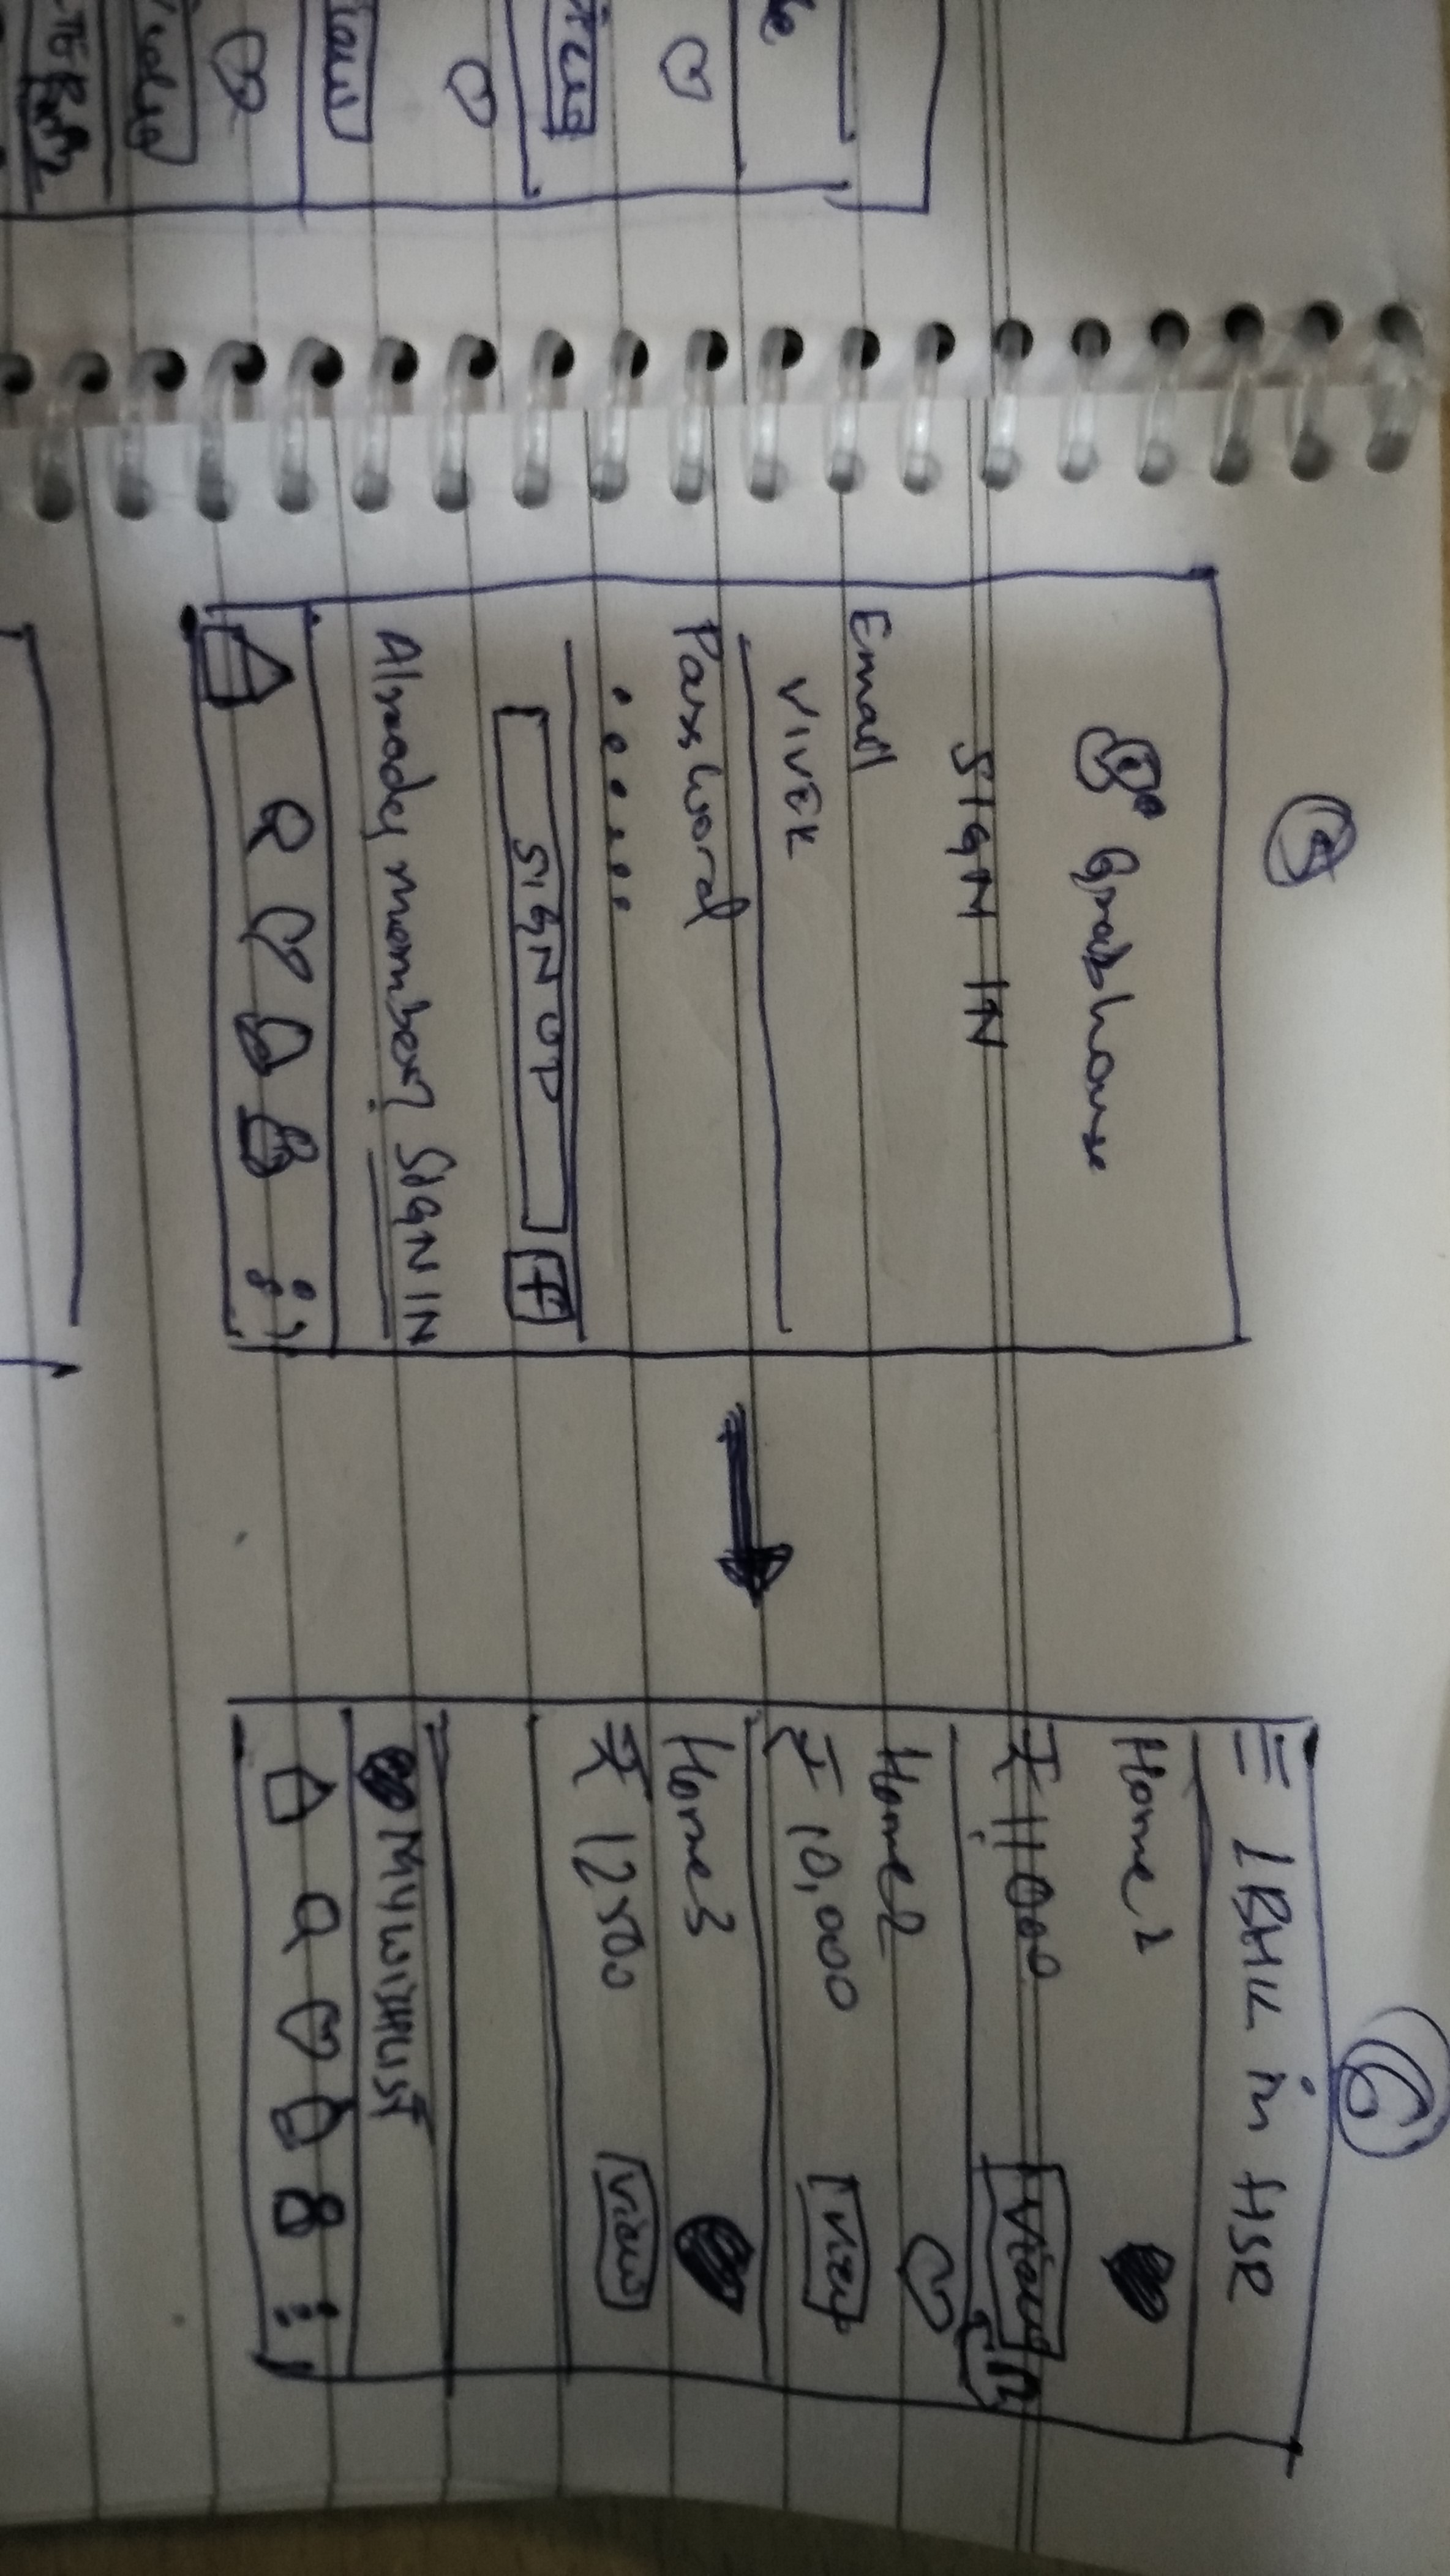 Grabhouse
SIGN IN
Email
VIVEK
Password
SIGN UP
+
Already member? SIGN IN
6
1BHK in HSR
Home 1
₹ 11000
View
Home 2
₹ 10,000
View
Home 3
₹ 12500
View
MY WISHLIST
View